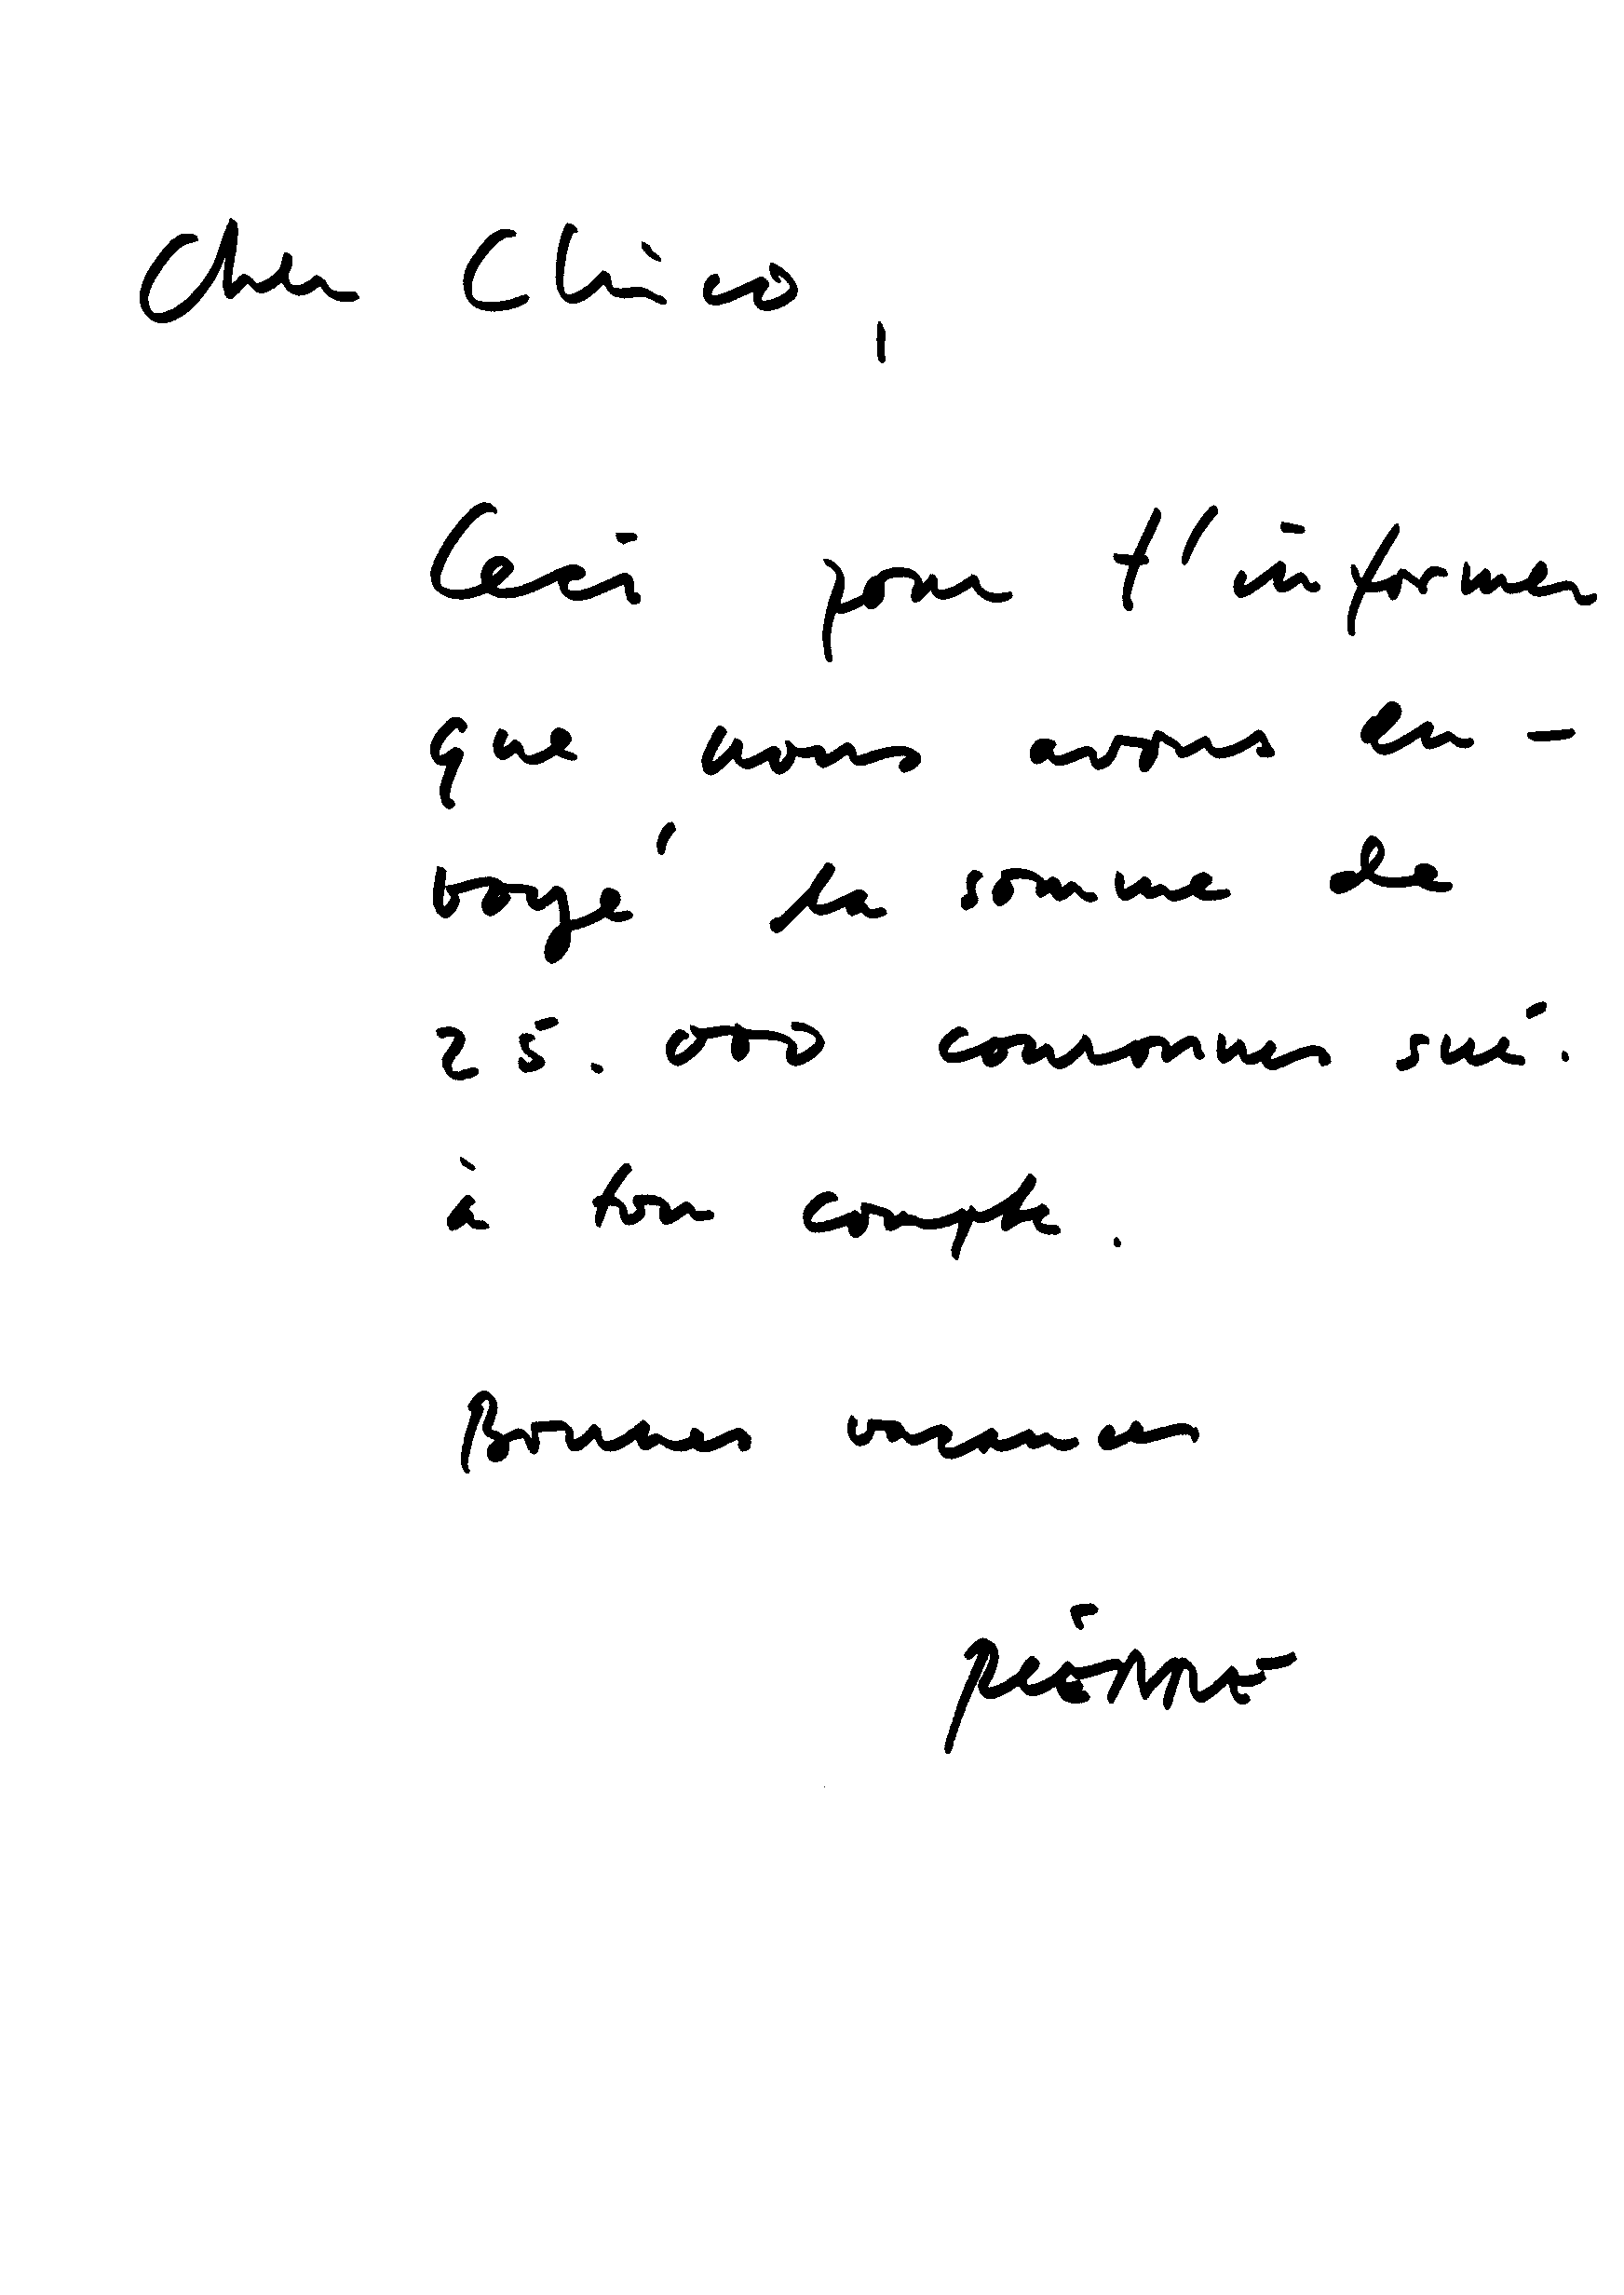 Cher Chico,
Ceci pour t'informer
que nous avons en-
voyé la somme de
25.000 couronnes sué.
à ton compte.
Bonnes vacances
PIERRE